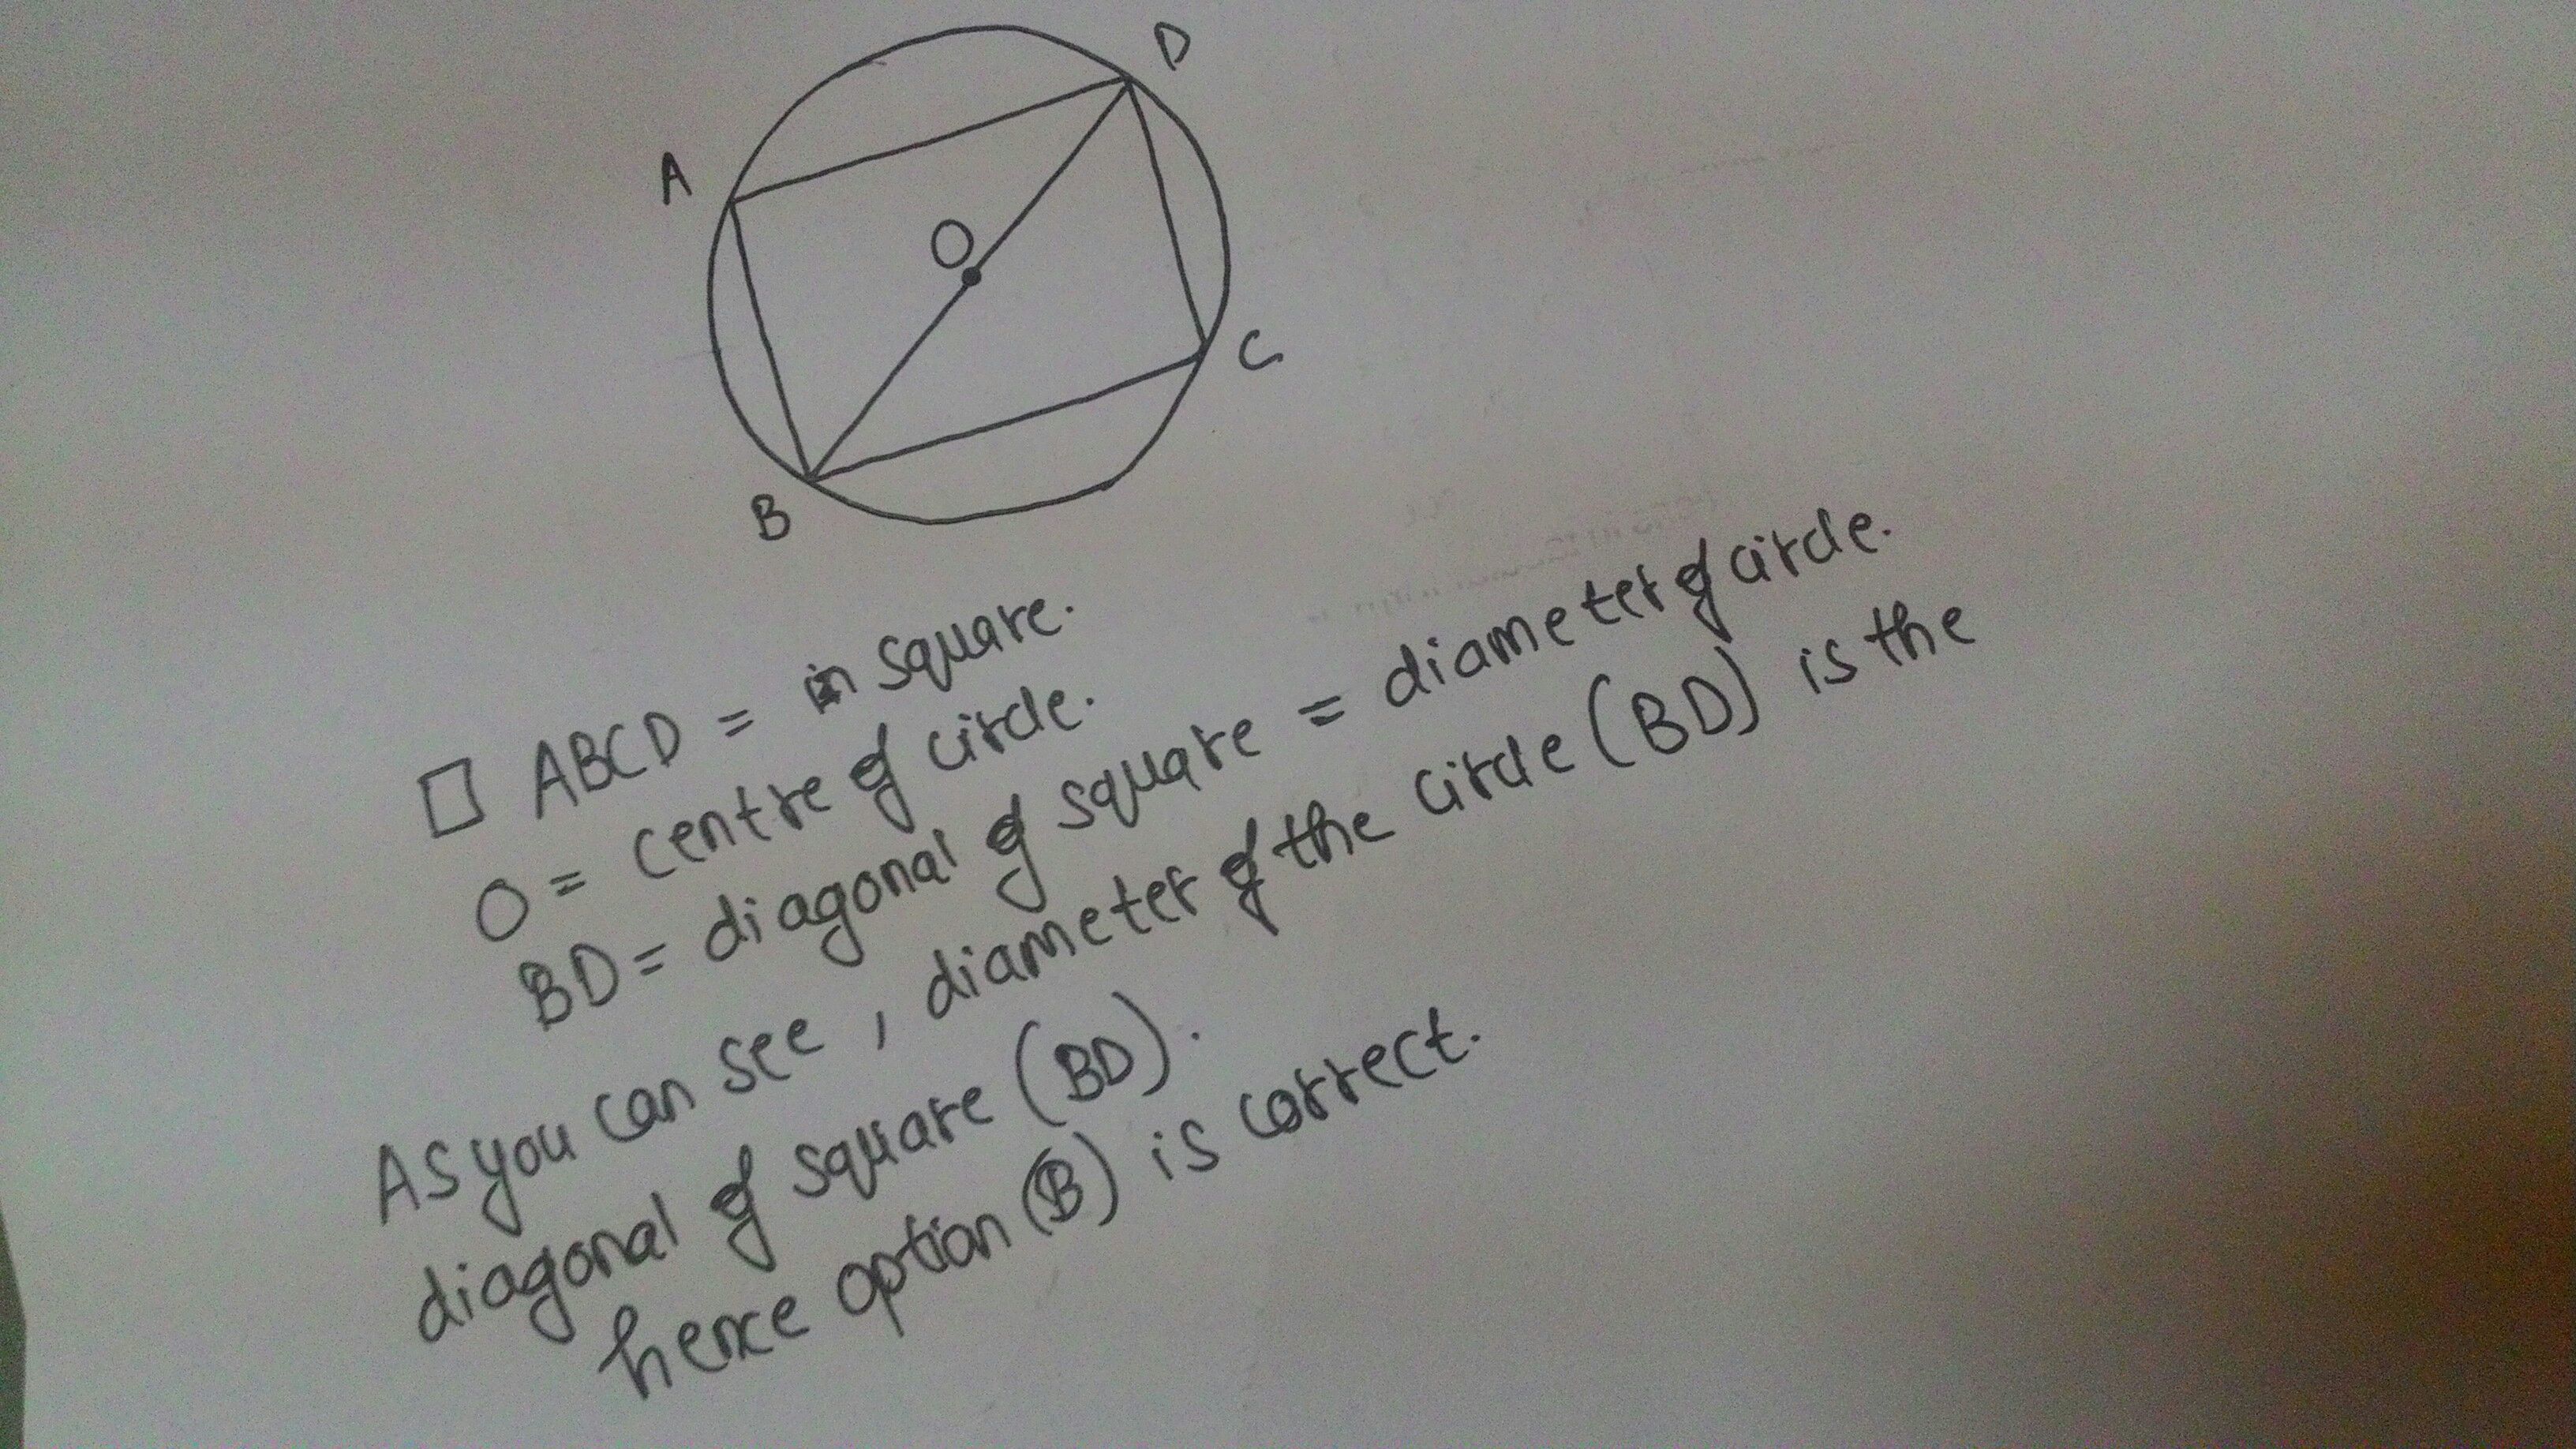 D
A
O
C
B
□ ABCD = in square.
O = centre of circle.
BD = diagonal of square = diameter of circle.
As you can see, diameter of the circle (BD) is the
diagonal of square (BD).
hence option (B) is correct.